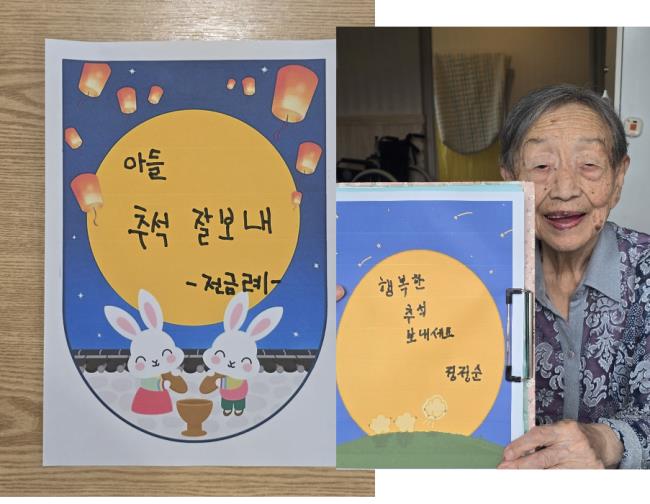 아들
추석 잘보내
-전금례-
행복한
추석
보내세요
정정순